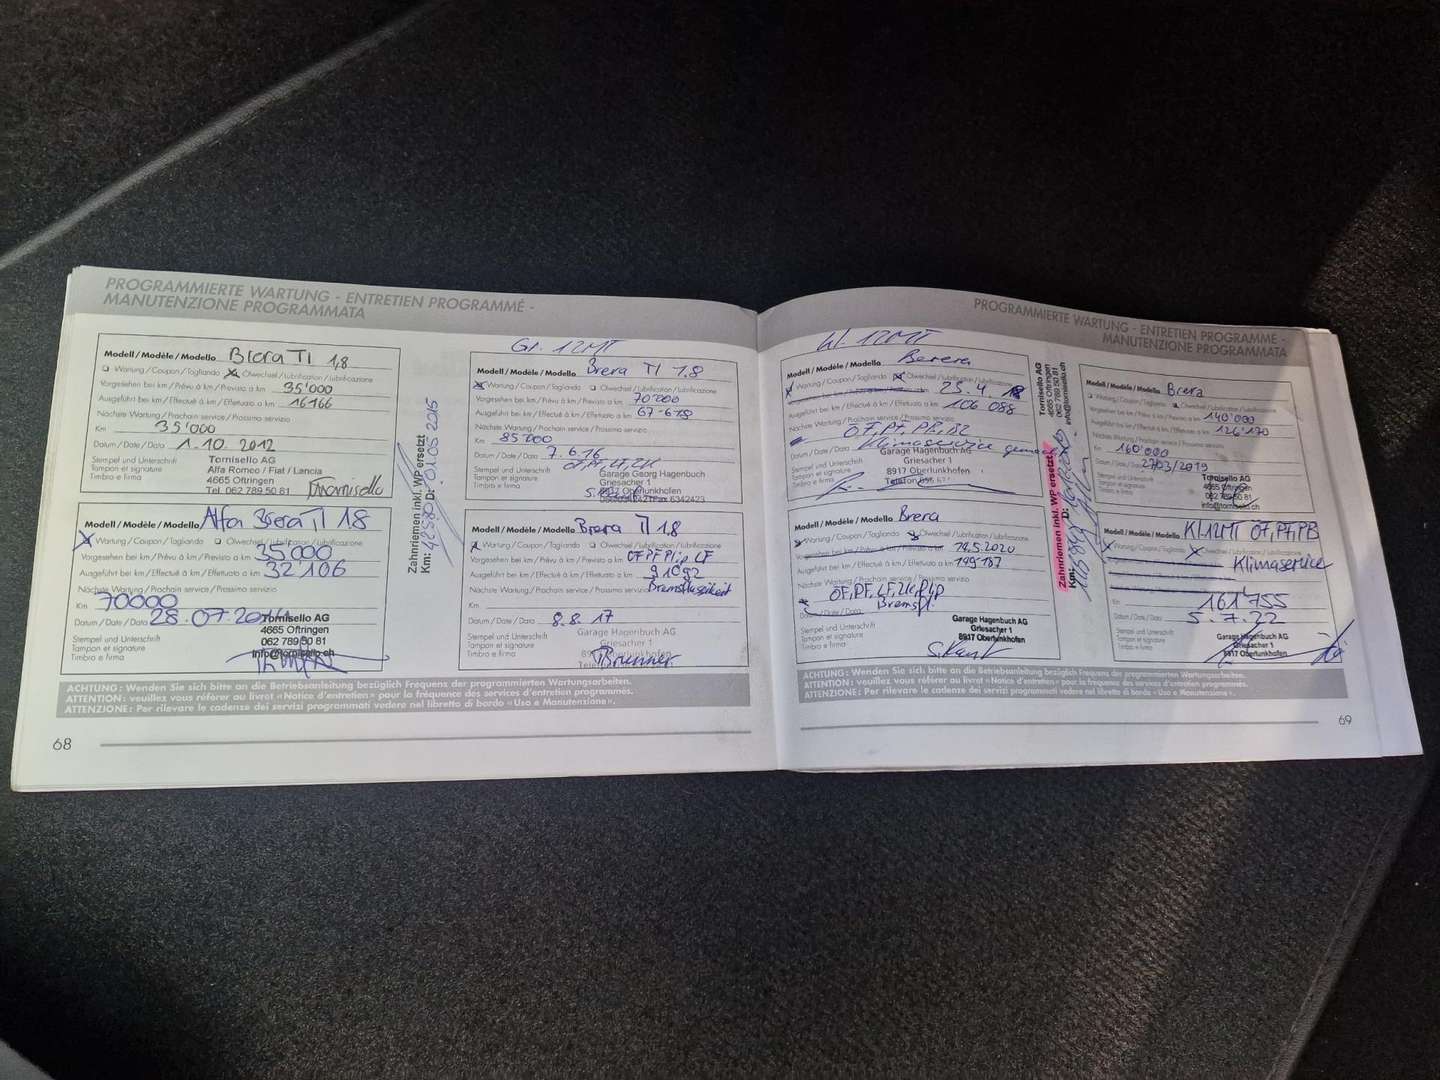 PROGRAMMIERTE WARTUNG - ENTRETIEN PROGRAMMÉ -
MANUTENZIONE PROGRAMMATA
Modell / Modèle / Modello Brera TI 1,8
Wartung / Coupon / Tagliando Ölwechsel / Lubrification / Lubrificazione
Vorgesehen bei km / Prévu à km / Previsto a km 35'000
Ausgeführt bei km / Effectué à km / Effettuato a km 16166
Nächste Wartung / Prochain service / Prossimo servizio
Km 35'000
Datum / Date / Data 1.10.2012
Stempel und Unterschrift
Tampon et signature
Timbro e firma
Tornisello AG
Alfa Romeo / Fiat / Lancia
4665 Oftringen
Tel. 062 789 50 81
Tornisello
Modell / Modèle / Modello Alfa Brera TI 1.8
Wartung / Coupon / Tagliando Ölwechsel / Lubrification / Lubrificazione
Vorgesehen bei km / Prévu à km / Previsto a km 35'000
Ausgeführt bei km / Effectué à km / Effettuato a km 32'106
Nächste Wartung / Prochain service / Prossimo servizio
Km 70000
Datum / Date / Data 28.07.20
Stempel und Unterschrift
Tampon et signature
Timbro e firma
Tornisello AG
4665 Oftringen
062 789 50 81
info@tornisello.ch
Zahnriemen inkl. WP ersetzt
Km: D: 01.05.2015
Gr. 12MT
Modell / Modèle / Modello Brera TI 1.8
Wartung / Coupon / Tagliando Ölwechsel / Lubrification / Lubrificazione
Vorgesehen bei km / Prévu à km / Previsto a km 70'000
Ausgeführt bei km / Effectué à km / Effettuato a km 67-618
Nächste Wartung / Prochain service / Prossimo servizio
Km 85'000
Datum / Date / Data 7.6.16
ÖF, PF, LF, ZK
Stempel und Unterschrift
Tampon et signature
Timbro e firma
Garage Georg Hagenbuch
Griesacher 1
Oberlunkhofen
Modell / Modèle / Modello Brera TI 1.8
Wartung / Coupon / Tagliando Ölwechsel / Lubrification / Lubrificazione
Vorgesehen bei km / Prévu à km / Previsto a km
Ausgeführt bei km / Effectué à km / Effettuato a km 91092
Nächste Wartung / Prochain service / Prossimo servizio Bremsflüssigkeit
Km
Datum / Date / Data 8.8.17
Stempel und Unterschrift
Tampon et signature
Timbro e firma
Garage Hagenbuch AG
Griesacher 1
Oberlunkhofen
Brunner
ACHTUNG: Wenden Sie sich bitte an die Betriebsanleitung bezüglich Frequenz der programmierten Wartungsarbeiten.
ATTENTION: veuillez vous référer au livret «Notice d'entretien» pour la fréquence des services d'entretien programmés.
ATTENZIONE: Per rilevare le cadenze dei servizi programmati vedere nel libretto di bordo «Uso e Manutenzione».
68
PROGRAMMIERTE WARTUNG - ENTRETIEN PROGRAMMÉ -
MANUTENZIONE PROGRAMMATA
12MT
Modell / Modèle / Modello
Wartung / Coupon / Tagliando Ölwechsel / Lubrification / Lubrificazione
25.4.18
Ausgeführt bei km / Effectué à km / Effettuato a km 106 088
Nächste Wartung / Prochain service / Prossimo servizio
ÖF, PF, PB, BZ
Klimaservice gem
Stempel und Unterschrift
Tampon et signature
Timbro e firma
Garage Hagenbuch AG
Griesacher 1
8917 Oberlunkhofen
Telefon 056
Modell / Modèle / Modello Brera
Wartung / Coupon / Tagliando Ölwechsel / Lubrification / Lubrificazione
14.5.2020
Ausgeführt bei km / Effectué à km / Effettuato a km
Nächste Wartung / Prochain service / Prossimo servizio
ÖF, PF, LF, ZK, PLip
Bremsfl.
Datum / Date / Data
Stempel und Unterschrift
Tampon et signature
Timbro e firma
Garage Hagenbuch AG
Griesacher 1
8917 Oberlunkhofen
Tornisello AG
4665 Oftringen
062 789 50 81
info@tornisello.ch
Zahnriemen inkl. WP ersetzt
Km: D:
Modell / Modèle / Modello Brera
Wartung / Coupon / Tagliando Ölwechsel / Lubrification / Lubrificazione
Vorgesehen bei km / Prévu à km / Previsto a km 140'000
Ausgeführt bei km / Effectué à km / Effettuato a km 126'170
Nächste Wartung / Prochain service / Prossimo servizio
Km 160'000
Datum / Date / Data 27/03/2019
Stempel und Unterschrift
Tampon et signature
Timbro e firma
Tornisello AG
4665 Oftringen
062 789 50 81
info@tornisello.ch
Modell / Modèle / Modello Kl.12MT ÖF, PF, PB
Wartung / Coupon / Tagliando Ölwechsel / Lubrification / Lubrificazione
Klimaservice
161'755
5.7.22
Stempel und Unterschrift
Tampon et signature
Timbro e firma
Garage Hagenbuch AG
Griesacher 1
8917 Oberlunkhofen
ACHTUNG: Wenden Sie sich bitte an die Betriebsanleitung bezüglich Frequenz der programmierten Wartungsarbeiten.
ATTENTION: veuillez vous référer au livret «Notice d'entretien» pour la fréquence des services d'entretien programmés.
ATTENZIONE: Per rilevare le cadenze dei servizi programmati vedere nel libretto di bordo «Uso e Manutenzione».
69